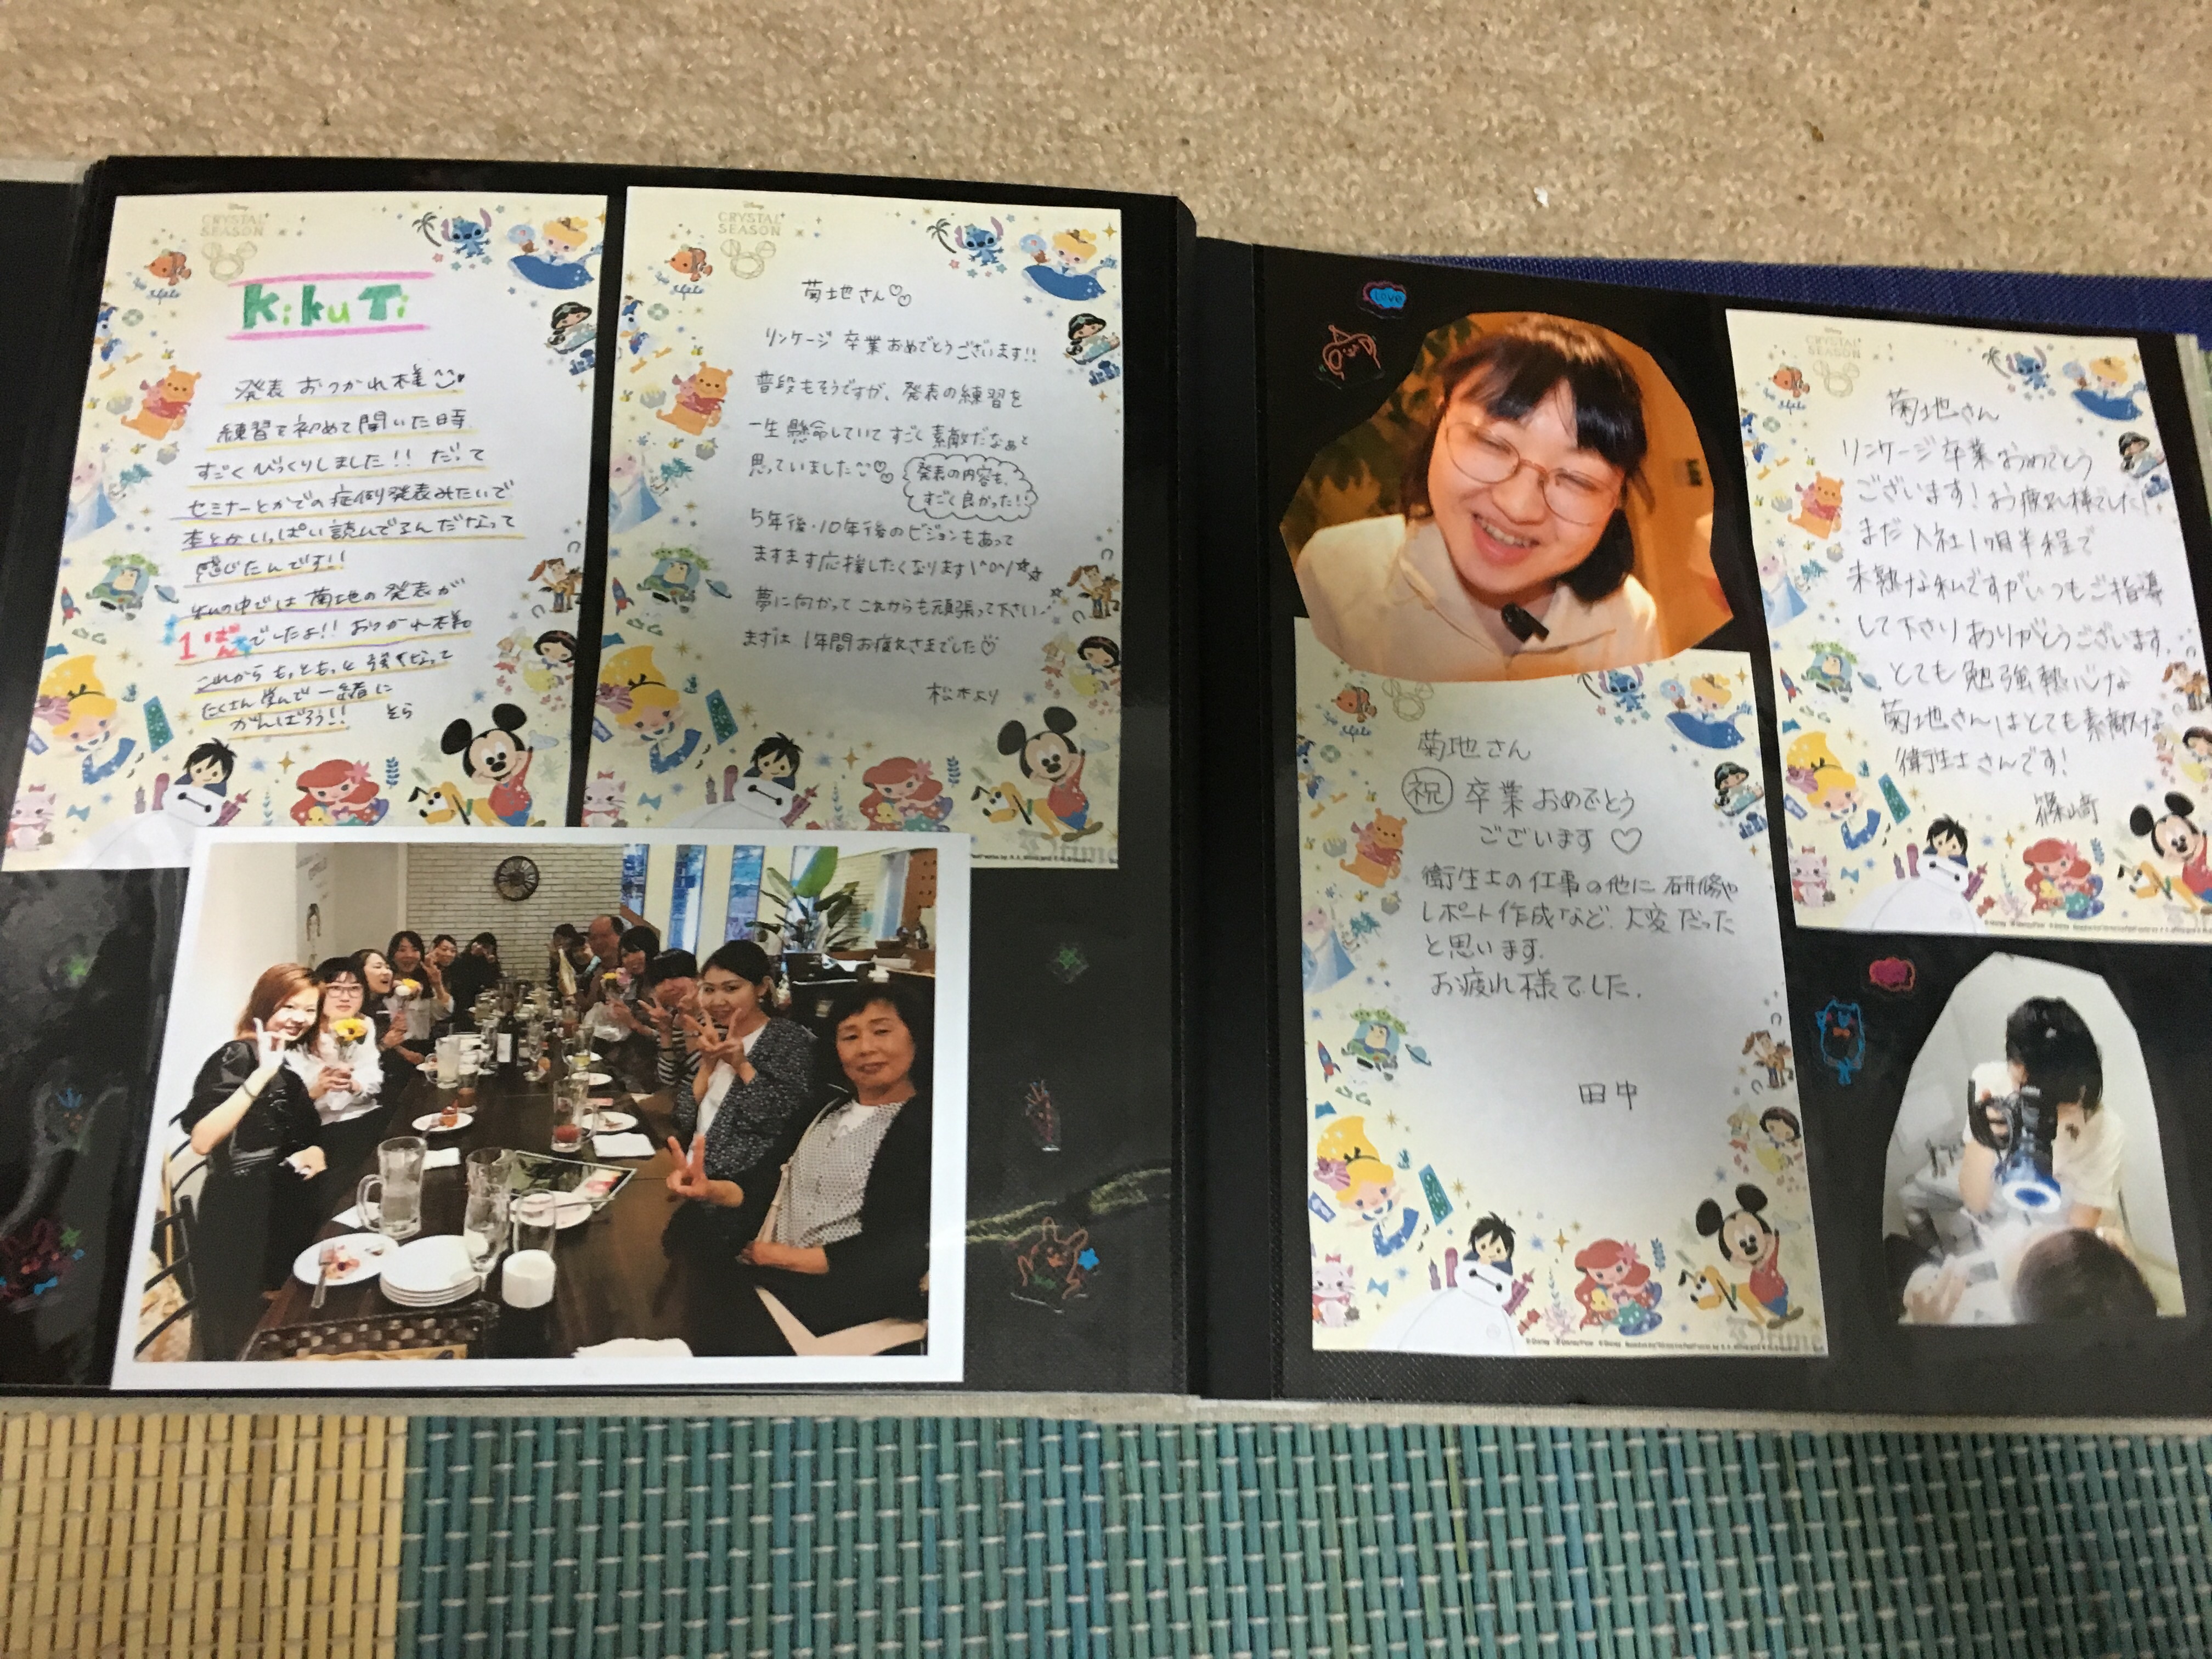 Disney
CRYSTAL
SEASON
KikuTi
発表 おつかれ様
練習で初めて聞いた時
すごくびっくりしました!! だって
セミナーとかでの症例発表みたいで
本とかいっぱい読んでるんだなって
感じたんです!!
私の中では菊地の発表が
1ばんでしたよ!! おつかれ様。
これからもっともっと強くなって
たくさん学んで一緒に
がんばろう!! そら
Disney
CRYSTAL
SEASON
菊地さん♡♡
リンケージ 卒業おめでとうございます!!
普段もそうですが、発表の練習を
一生懸命していてすごく素敵だなぁと
思っていました
発表の内容も、
すごく良かった!!
5年後・10年後のビジョンもあって
ますます応援したくなります\(^o^)/☆☆
夢に向かってこれからも頑張って下さい
まずは 1年間お疲れさまでした
松本より
LOVE
菊地さん
祝 卒業おめでとう
ございます♡
衛生士の仕事の他に研修や
レポート作成など、大変だった
と思います。
お疲れ様でした。
田中
CRYSTAL
SEASON
菊地さん
リンケージ卒業おめでとう
ございます!お疲れ様でした!
まだ入社1ヶ月半程で
未熟な私ですがいつもご指導
して下さりありがとうございます。
とても勉強熱心な
菊地さんはとても素敵な
衛生士さんです!
篠崎